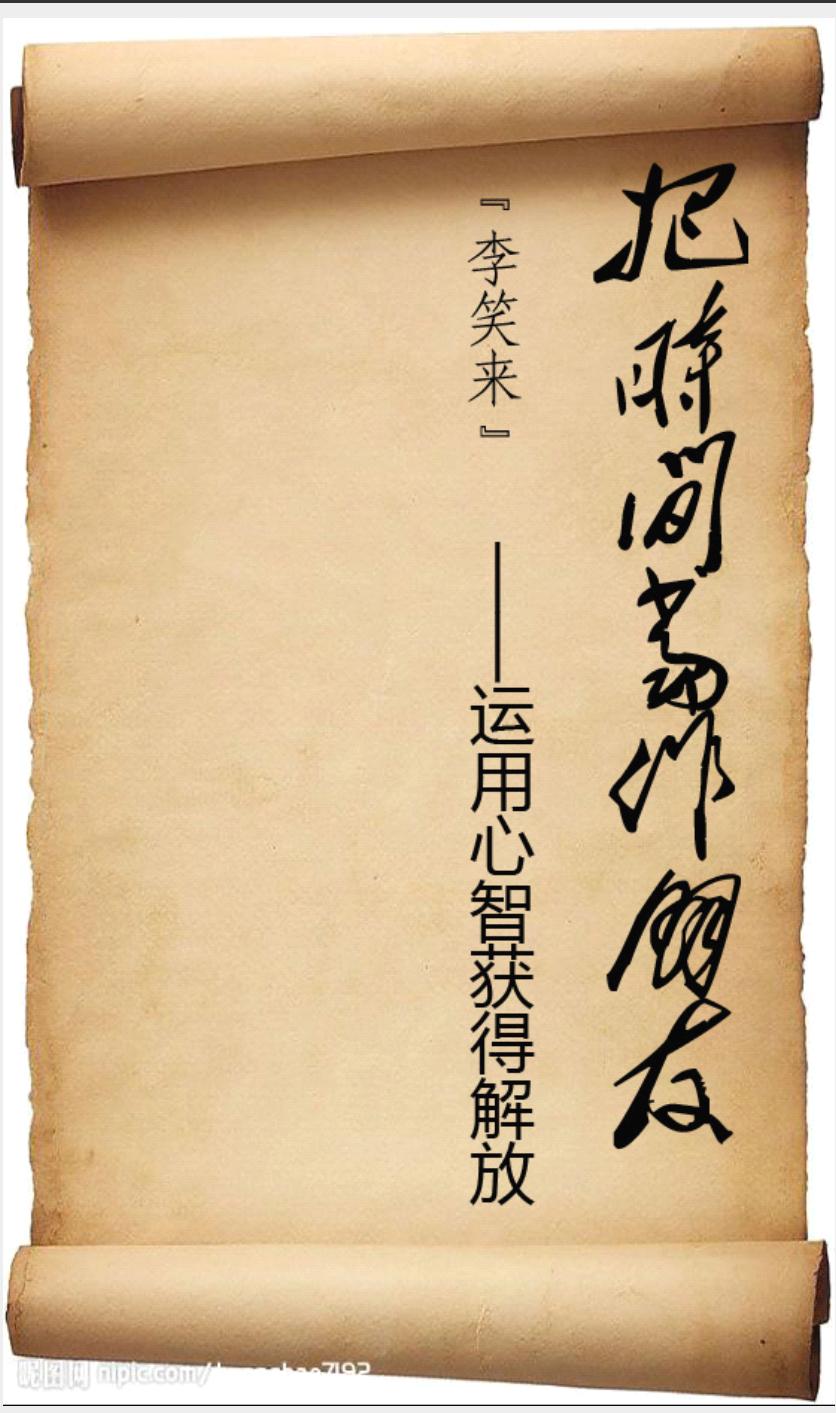 把時間當作朋友
『李笑来』
——运用心智获得解放
昵图网 nipic.com/